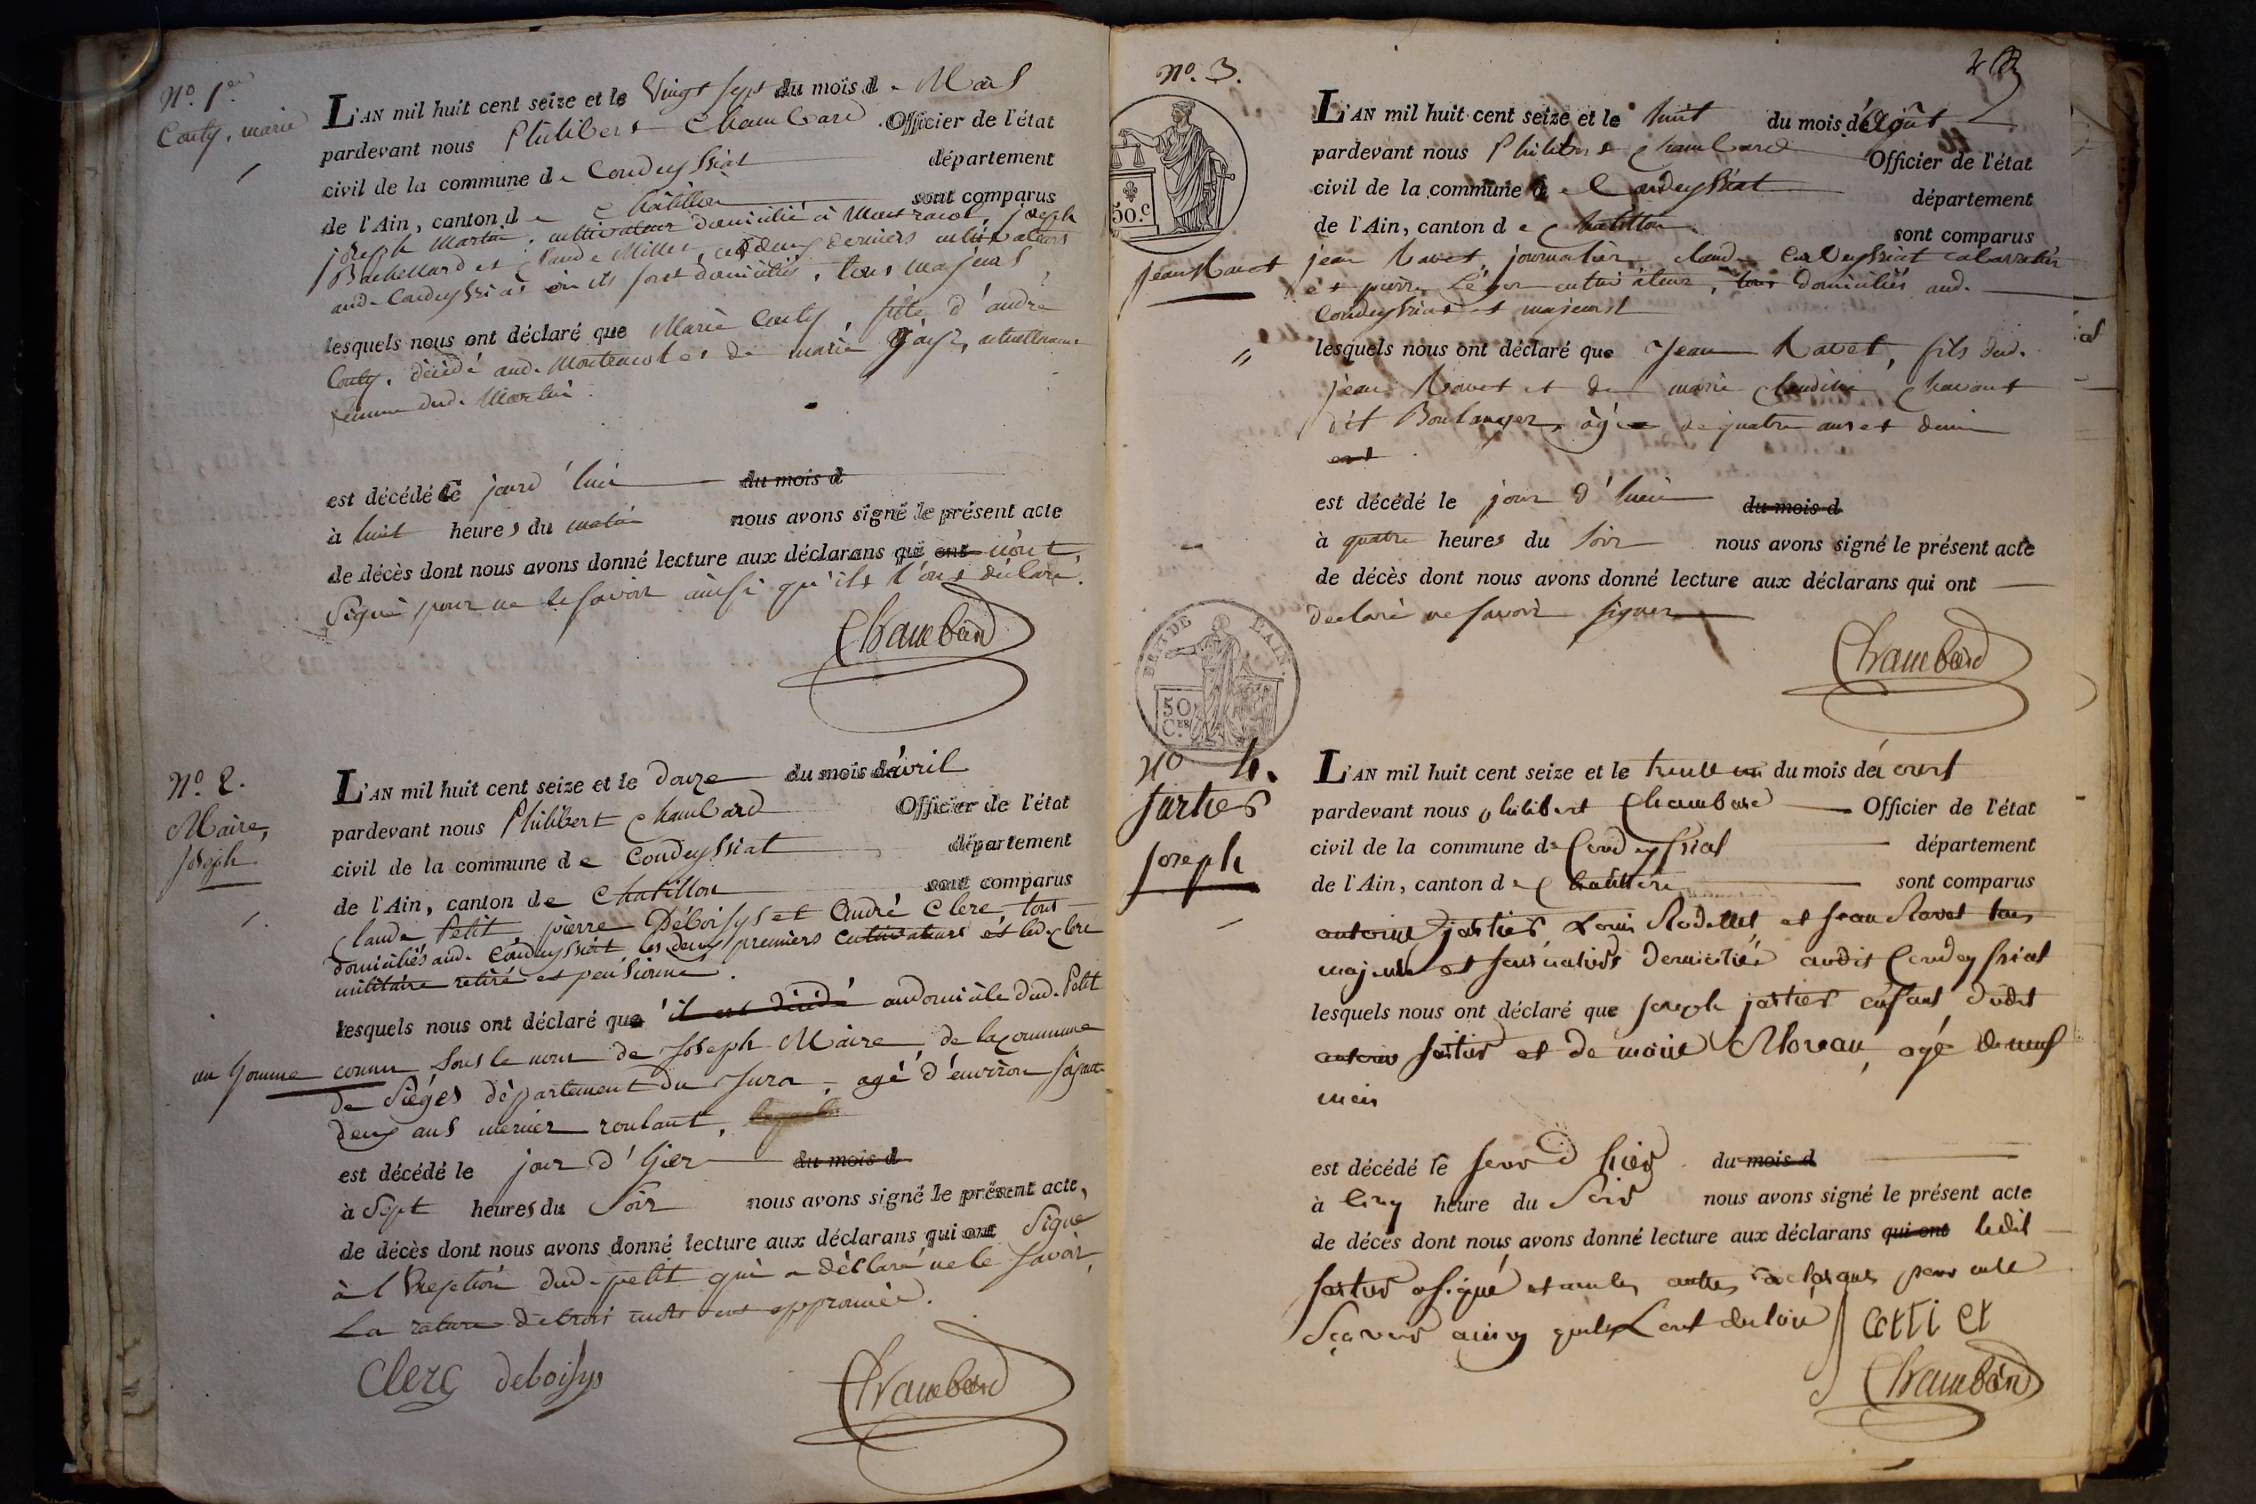 N.o 1.er
Couty, marie
L'AN mil huit cent seize et le Vingt sept du mois de Mars
pardevant nous Philibert Chambard Officier de l'état
civil de la commune de Condeyssiat département
de l'Ain, canton de Châtillon sont comparus
joseph Martin, cultivateur domicilié à Montracol, joseph
Bachellard et Claude Millet, ces deux derniers cultivateurs
aud. Condeyssiat où ils sont domiciliés, tous majeurs,
lesquels nous ont déclaré que Marie Couty, fille d'andré
Couty, décédé aud. Montracol et de marie actuellement
femme dud. Martin.
est décédé ce jourd'hui du mois d
à huit heures du matin nous avons signé le présent acte
de décès dont nous avons donné lecture aux déclarans qui ont n'ont
signé pour ne le savoir ainsi qu'ils l'ont déclaré.
Chambard
N.o 2.
Maire,
joseph
L'AN mil huit cent seize et le douze du mois d'avril
pardevant nous Philibert Chambard Officier de l'état
civil de la commune de Condeyssiat département
de l'Ain, canton de Chatillon sont comparus
Claude Petit, pierre Déboisys et André Clerc tous
domiciliés aud. Condeyssiat les deux premiers cultivateurs et led. Clerc
militaire retiré et pensionné.
lesquels nous ont déclaré que il est décédé au domicile dud. Petit
un homme connu sous le nom de Joseph Maire, de la commune
de Siéges département du Jura, agé d'environ soixante
deux ans menier roulant,
est décédé le jour d'hier du mois d
à Sept heures du Soir nous avons signé le présent acte,
de décès dont nous avons donné lecture aux déclarans qui ont Signé
à l'exeption dud. petit qui a déclaré ne le savoir,
La rature de trois mots est approuvée.
Clerc deboisys
Chambard
N.o 3.
50.c
jean Ravet
L'AN mil huit cent seize et le huit du mois d'août
pardevant nous Philibert Chambard Officier de l'état
civil de la commune de Condeyssiat département
de l'Ain, canton de Chatillon sont comparus
jean Ravet journalier, claude Condeyssiat cabaretier
et pierre Léger cultivateur, tous domiciliés aud.
Condeyssiat et majeurs
lesquels nous ont déclaré que Jean Ravet, fils dud.
jean Ravet et de marie claudine Chavant
dit Boulanger, âgé de quatre ans et demi
est décédé le jour d'hui du mois d
à quatre heures du soir nous avons signé le présent acte
de décès dont nous avons donné lecture aux déclarans qui ont
declaré ne savoir signer
Chambard
DEP. DE L'AIN.
50
C.
N.o 4.
jartier
joseph
L'AN mil huit cent seize et le trente un du mois d'août
pardevant nous philibert Chambard Officier de l'état
civil de la commune de Condeyssiat département
de l'Ain, canton de Chatillon sont comparus
antoine jartier Louis Rodellet et jean Ravet tous
majeurs et domiciliés audit Condeyssiat
lesquels nous ont déclaré que joseph jartier enfant dudit
antoine jartier et de marie Moreau, agé de neuf
mois
est décédé le jour d hier du mois d
à cinq heure du Soir nous avons signé le présent acte
de décès dont nous avons donné lecture aux déclarans qui ont ledit
jartier a signé et non les autres pour ne le
sçavoir ainsy quils lont declaré
Chambard